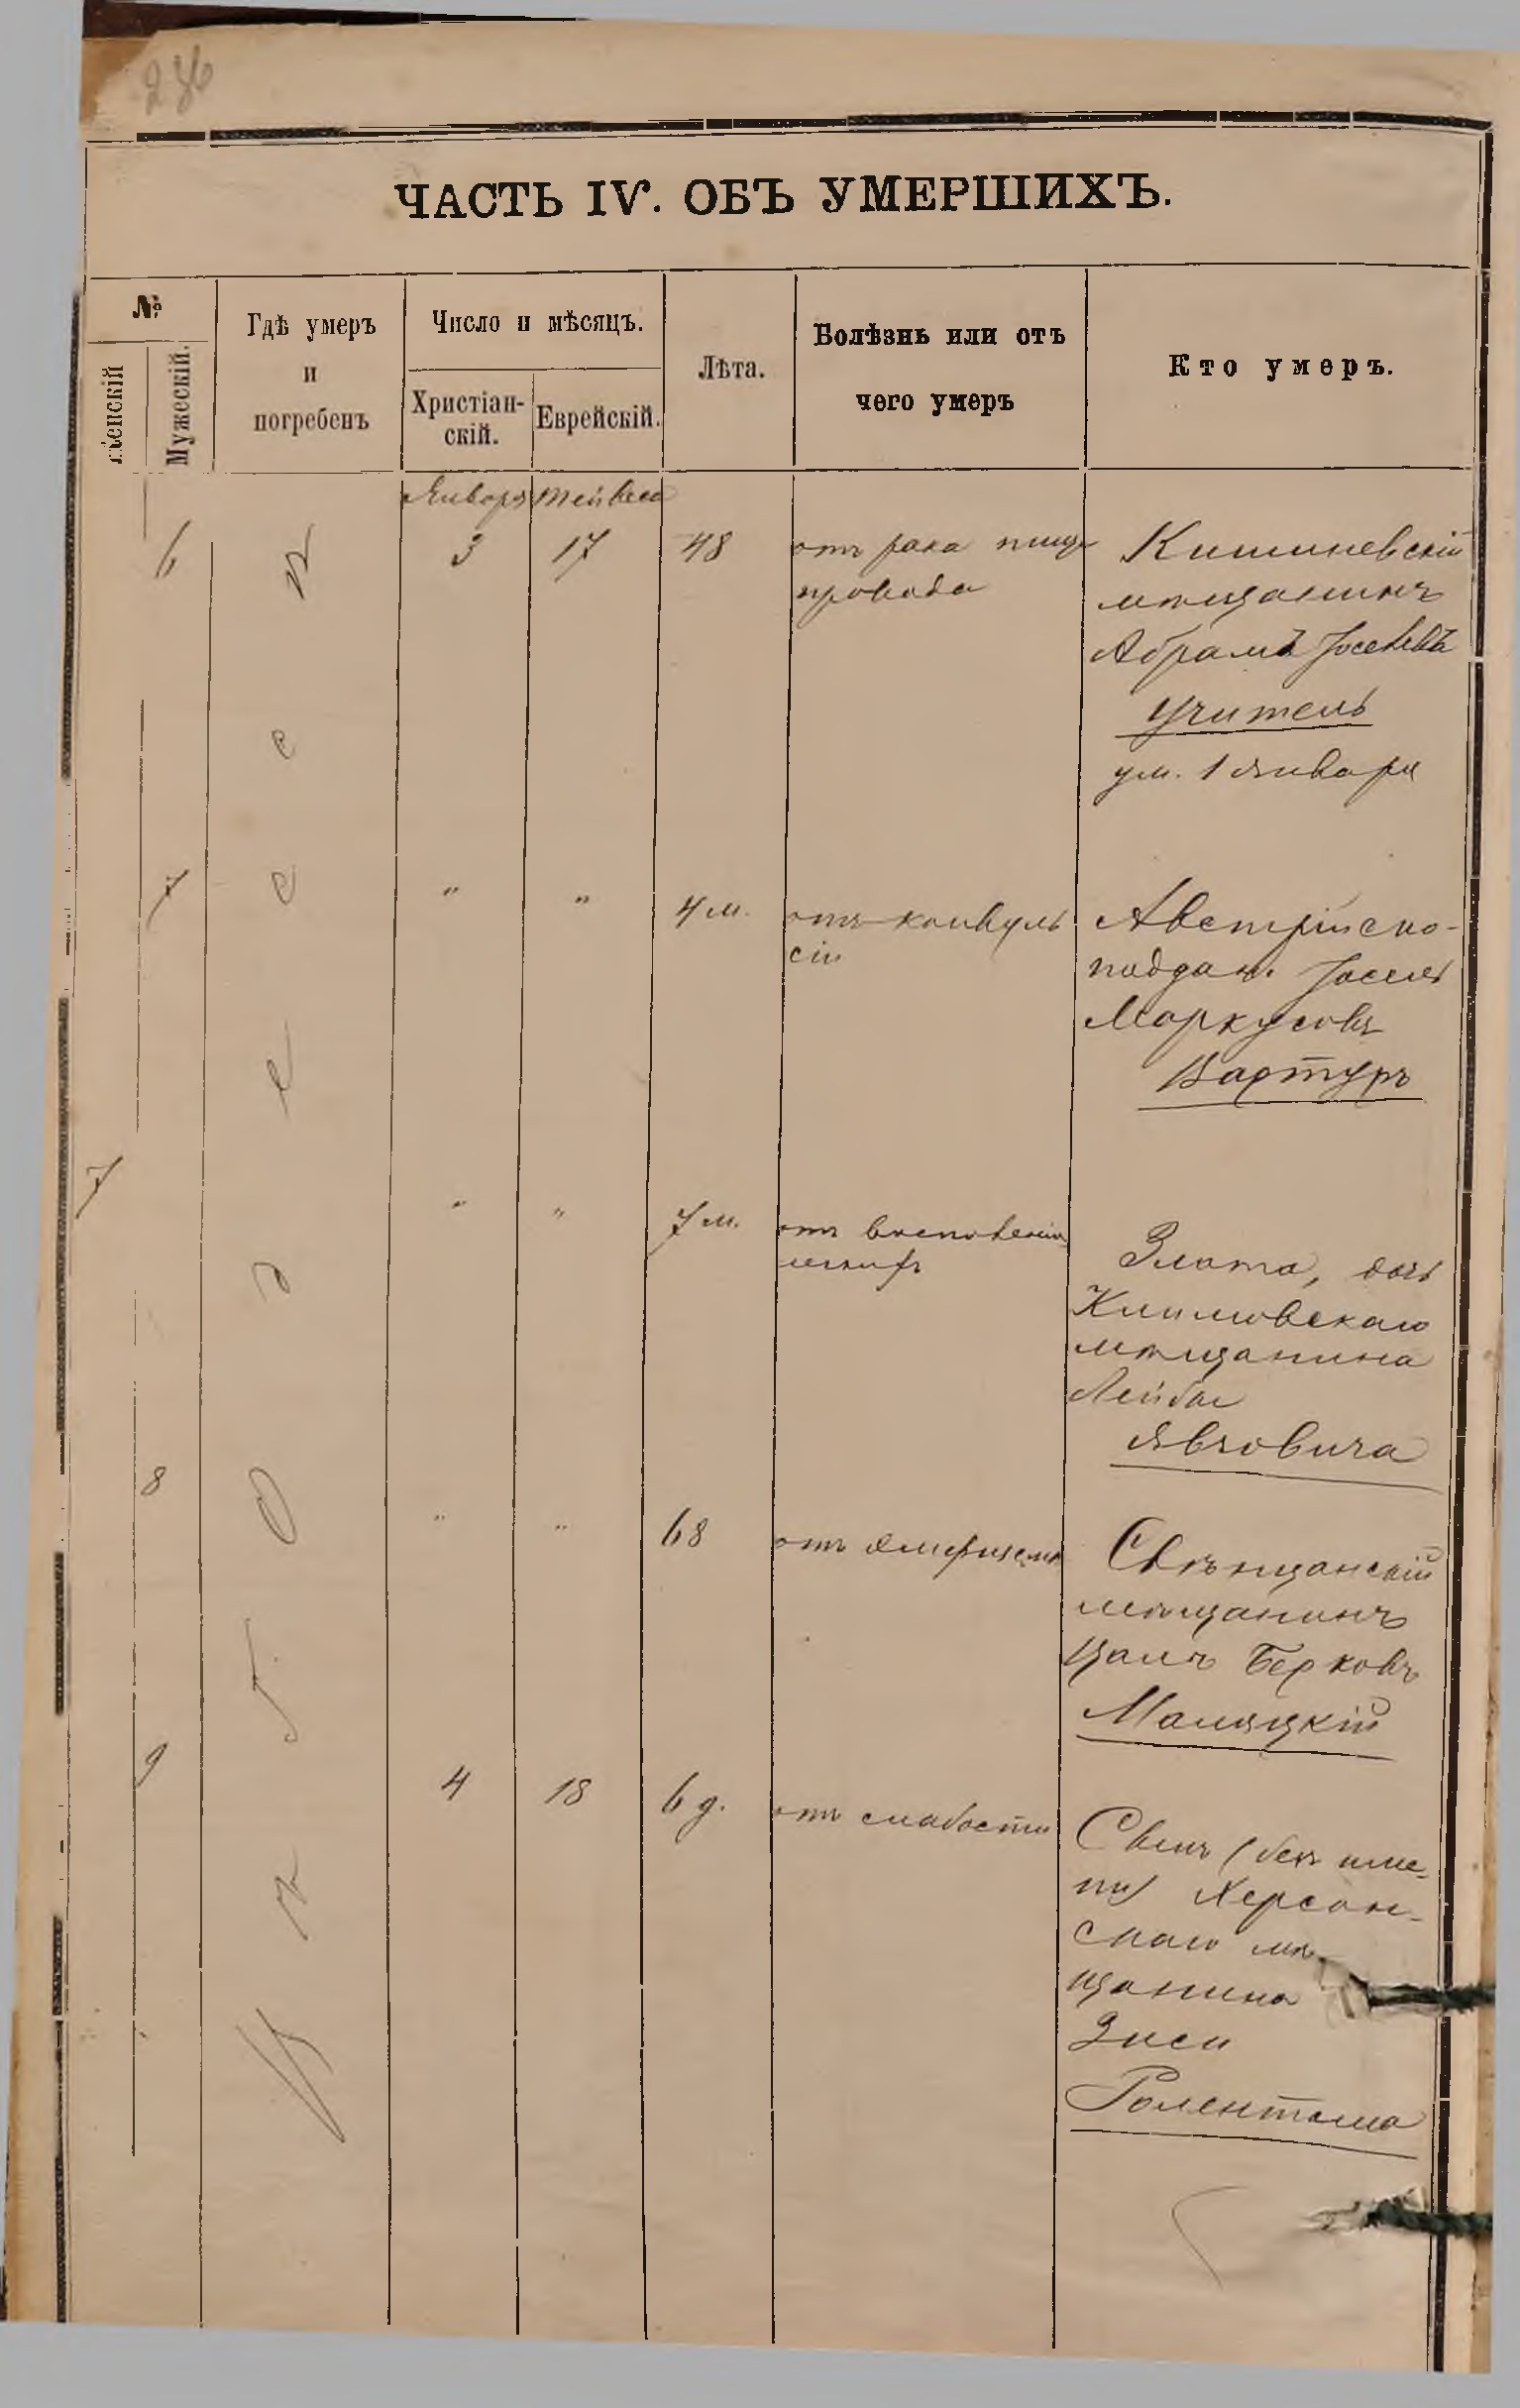 236
ЧАСТЬ IV. ОБЪ УМЕРШИХЪ.
№
Женскій
Мужескій.
Гдѣ умеръ
и
погребенъ
Число и мѣсяцъ.
Христіан-
скій.
Еврейскій.
Лѣта.
Болѣзнь или отъ
чего умеръ
Кто умеръ.
Января Тейвеса
6 3 17 48 отъ рака пище
провода
Кишиневскій
мѣщанинъ
Абрамъ Іосевъ
Учитель
ум. 1 Января
7 " " 4 м. отъ конвуль
сіи
Австрійско-
поддан. Іосель
Маркусовъ
Вартуръ
7 " " 7 м. отъ воспаленія
легкихъ
Злота, дочь
мѣщанина
Лейбы
Явзовича
8 " " 68 отъ эмфиземы
мѣщанинъ
Берковъ
Маляцкій
9 4 18 6 д. отъ слабости
Сынъ (безъ име-
ни) Херсон-
скаго мѣ-
щанина
Зиси
Ролентала